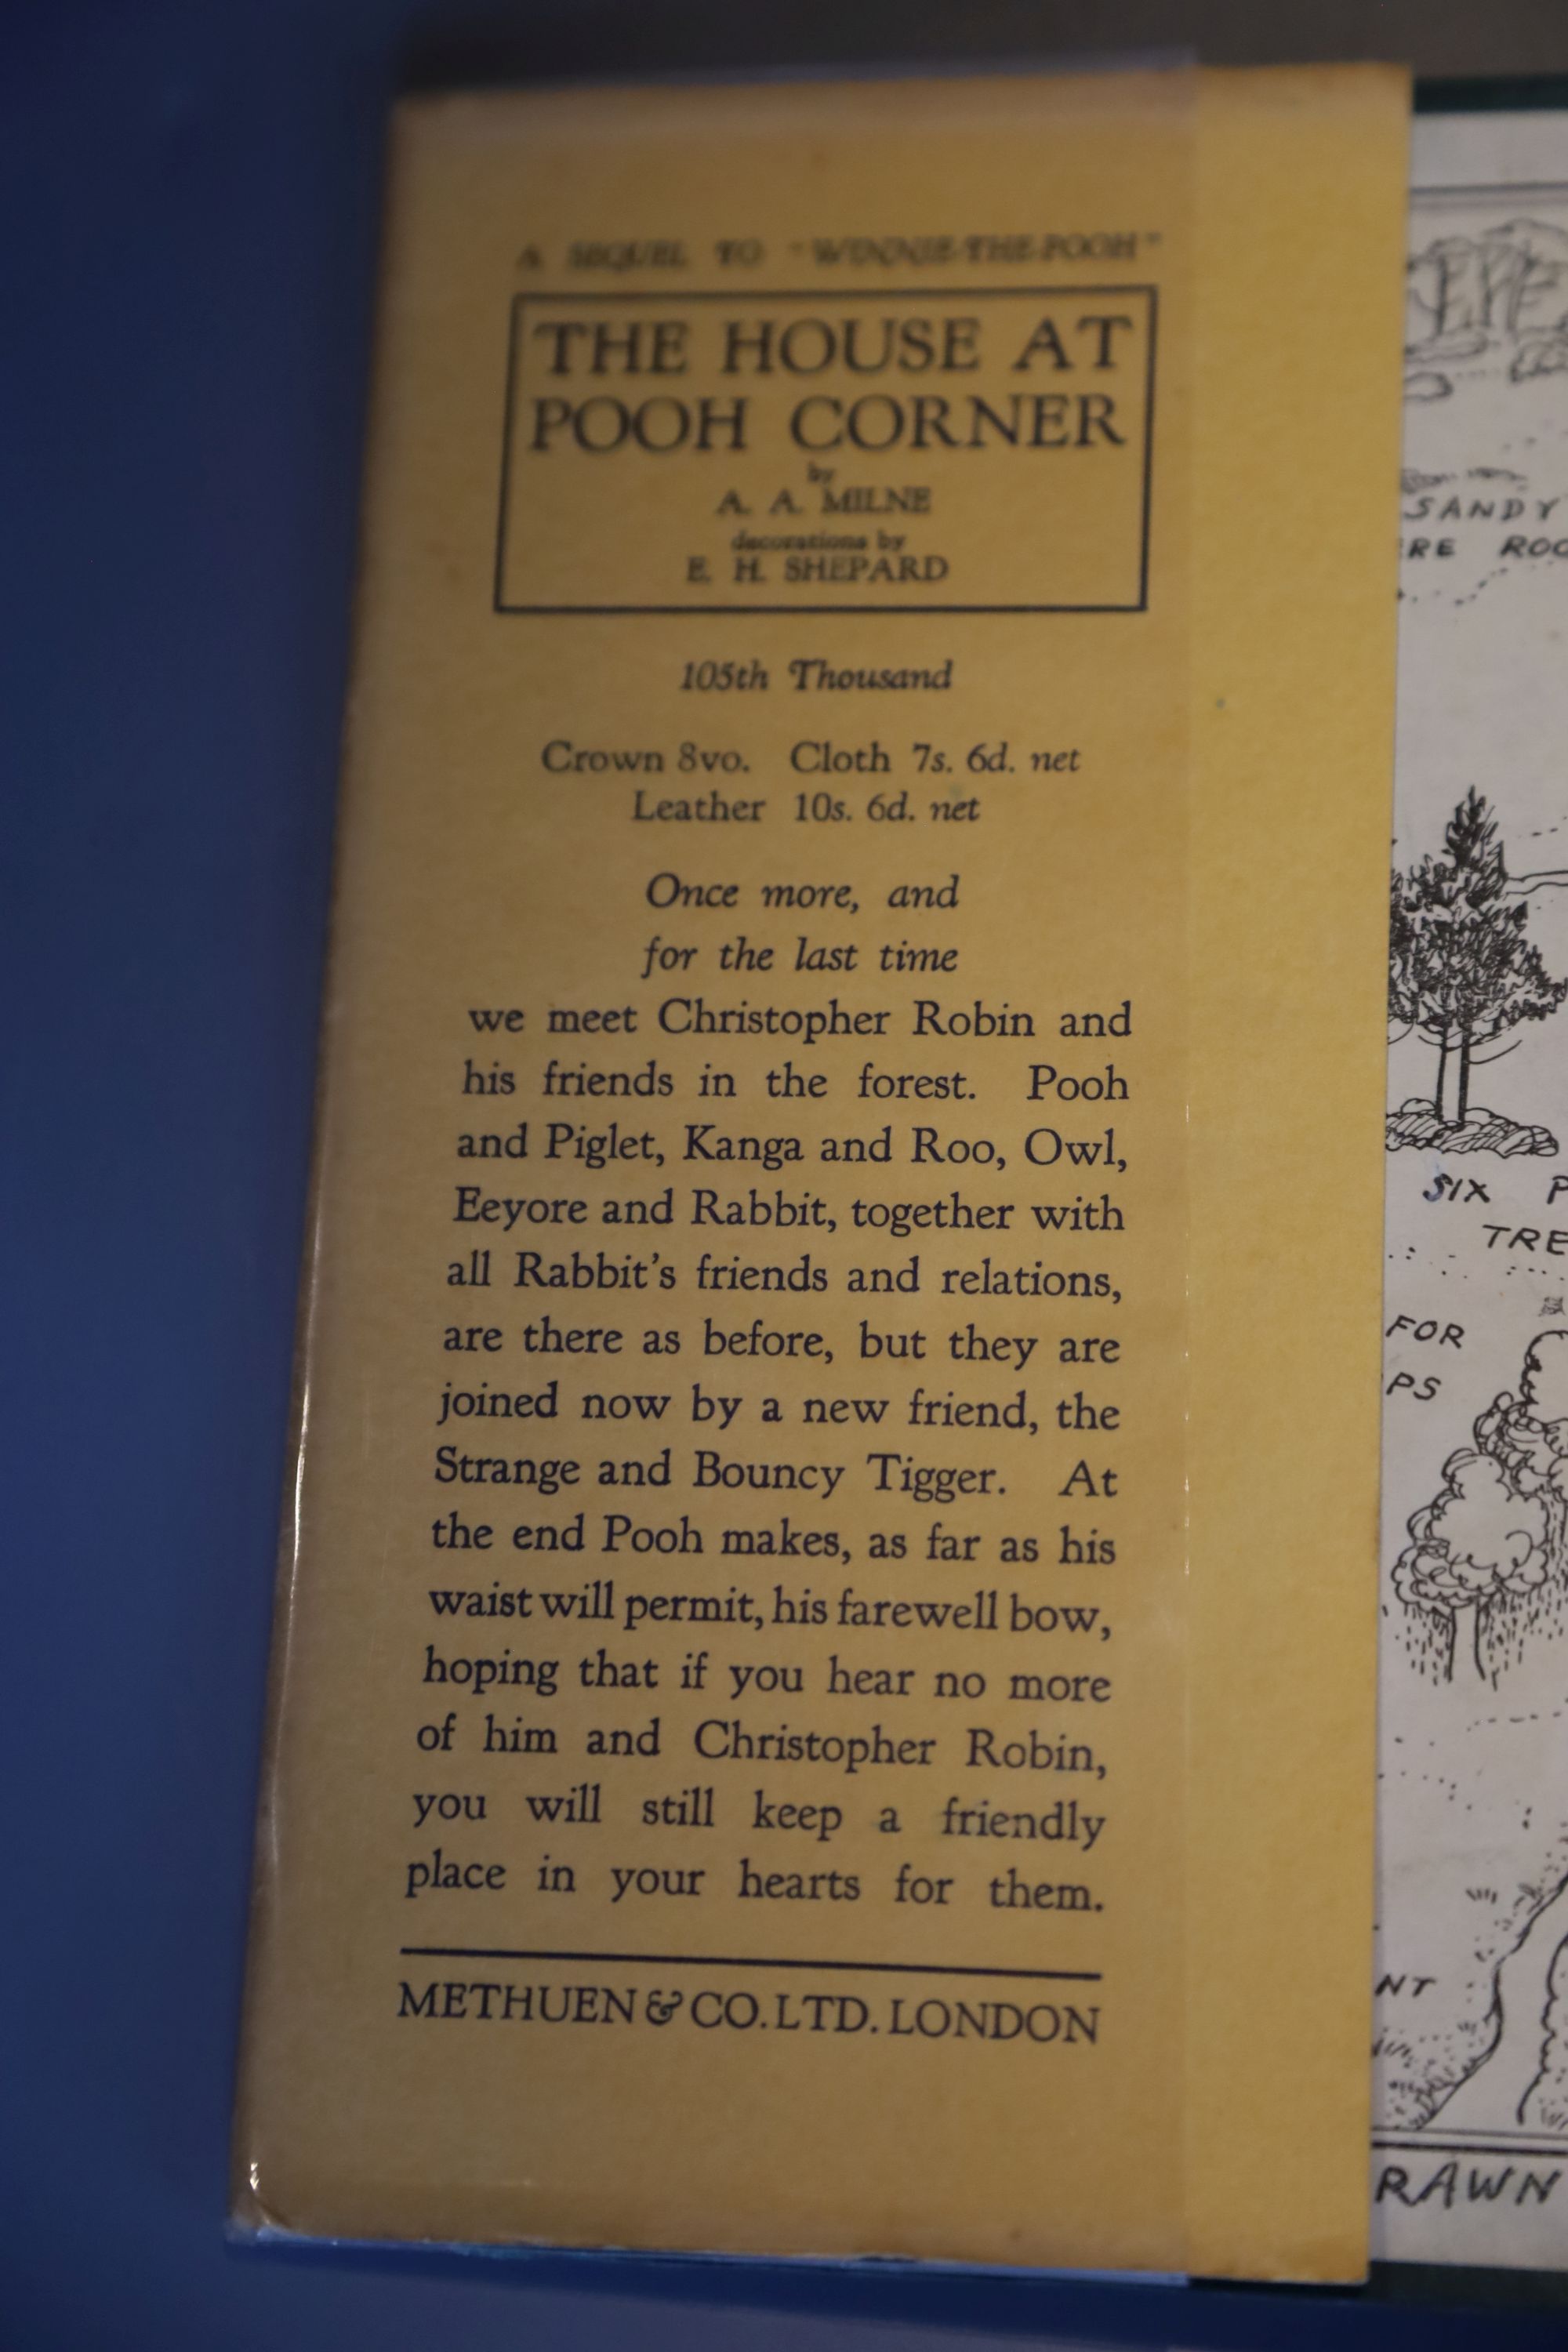 A SEQUEL TO "WINNIE-THE-POOH"
THE HOUSE AT
POOH CORNER
by
A. A. MILNE
decorations by
E. H. SHEPARD
105th Thousand
Crown 8vo. Cloth 7s. 6d. net
Leather 10s. 6d. net
Once more, and
for the last time
we meet Christopher Robin and
his friends in the forest. Pooh
and Piglet, Kanga and Roo, Owl,
Eeyore and Rabbit, together with
all Rabbit's friends and relations,
are there as before, but they are
joined now by a new friend, the
Strange and Bouncy Tigger. At
the end Pooh makes, as far as his
waist will permit, his farewell bow,
hoping that if you hear no more
of him and Christopher Robin,
you will still keep a friendly
place in your hearts for them.
METHUEN & CO. LTD. LONDON
SANDY
ERE ROO
SIX P
TRE
FOR
PS
NT
RAWN